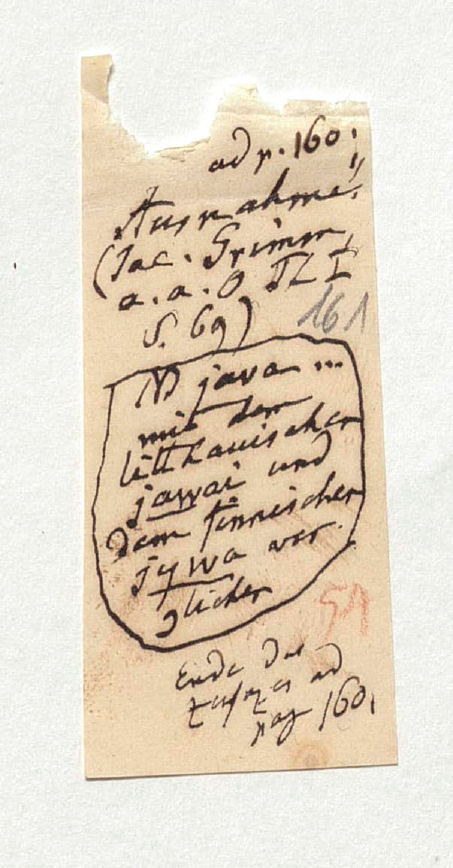 ad p. 160.
Ausnahme:
(Jac. Grimm,
a. a. O Th I
S. 69)
161
java ...
mit dem
litthauischen
jawai und
dem finnischen
jywa ver-
glichen
51
Ende des
Zusatzes ad
pag 160.